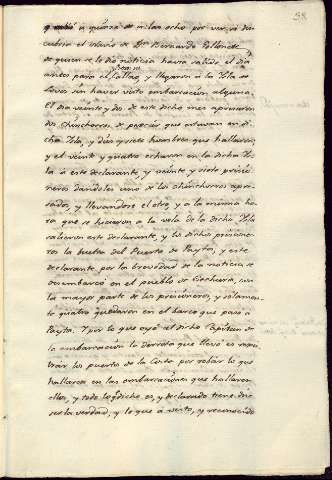 58
q salió a quinze o milan ocho por ver, ya des
cubrio el navio de Dn Bernardo
de quien se le dió noticia havia salido el dia
antes para el Callao, y llegaron á la Isla de
Lovos sin haver visto embarcacion alguna.
El dia veinte y dos de este dicho mes apresaron
dos chinchorros de pescar que estavan en di
cha Isla, y diez y siete hombres que hallaron,
y el veinte y quatro echaron en la dicha Is
la á este declarante, y veinte y siete pricio
neros dandoles uno de los chinchorros apre
sados, y llevandose el otro, y a la misma ho
ra que se hicieron a la vela de la dicha Isla
salieron este declarante, y los dichos pricione
ros la buelta del Puerto de Payta, y este
declarante por la brevedad de la noticia se
desembarcó en el pueblo de Sechura, con
la mayor parte de los pricioneros, y solamen
te quatro quedaron en el barco que pasó a
Payta. Y por lo que oyó al dicho Capitan de
la embarcacion la derrota que llevó es
los puertos de la Costa por robar lo que
hallaren en las embarcaciones que hallaren
ellos, y todo lo q dicho es, y declarado tiene dixo
ser la verdad, y lo que á visto, y reconocido